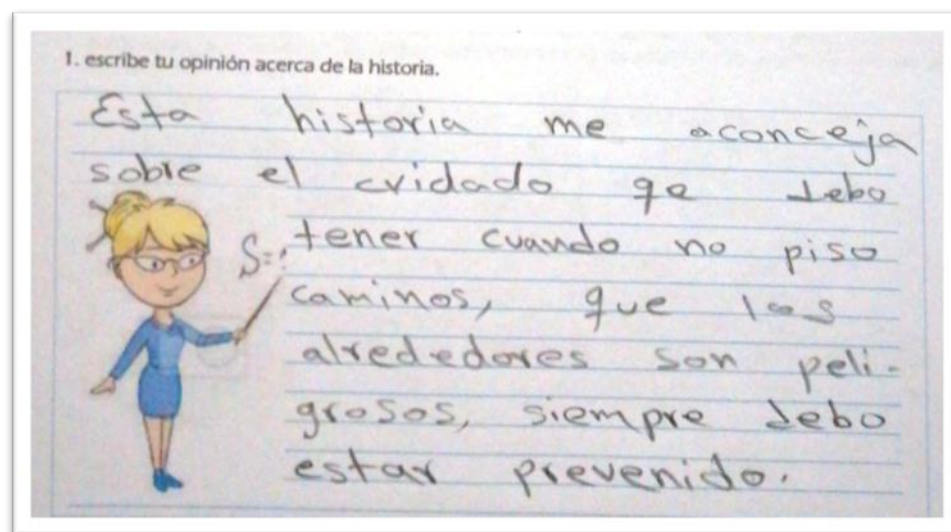 1. escribe tu opinión acerca de la historia.
Esta historia me aconceja
sobre el cuidado qe debo
tener cuando no piso
caminos, que los
alrededores son peli-
grosos, siempre debo
estar prevenido.